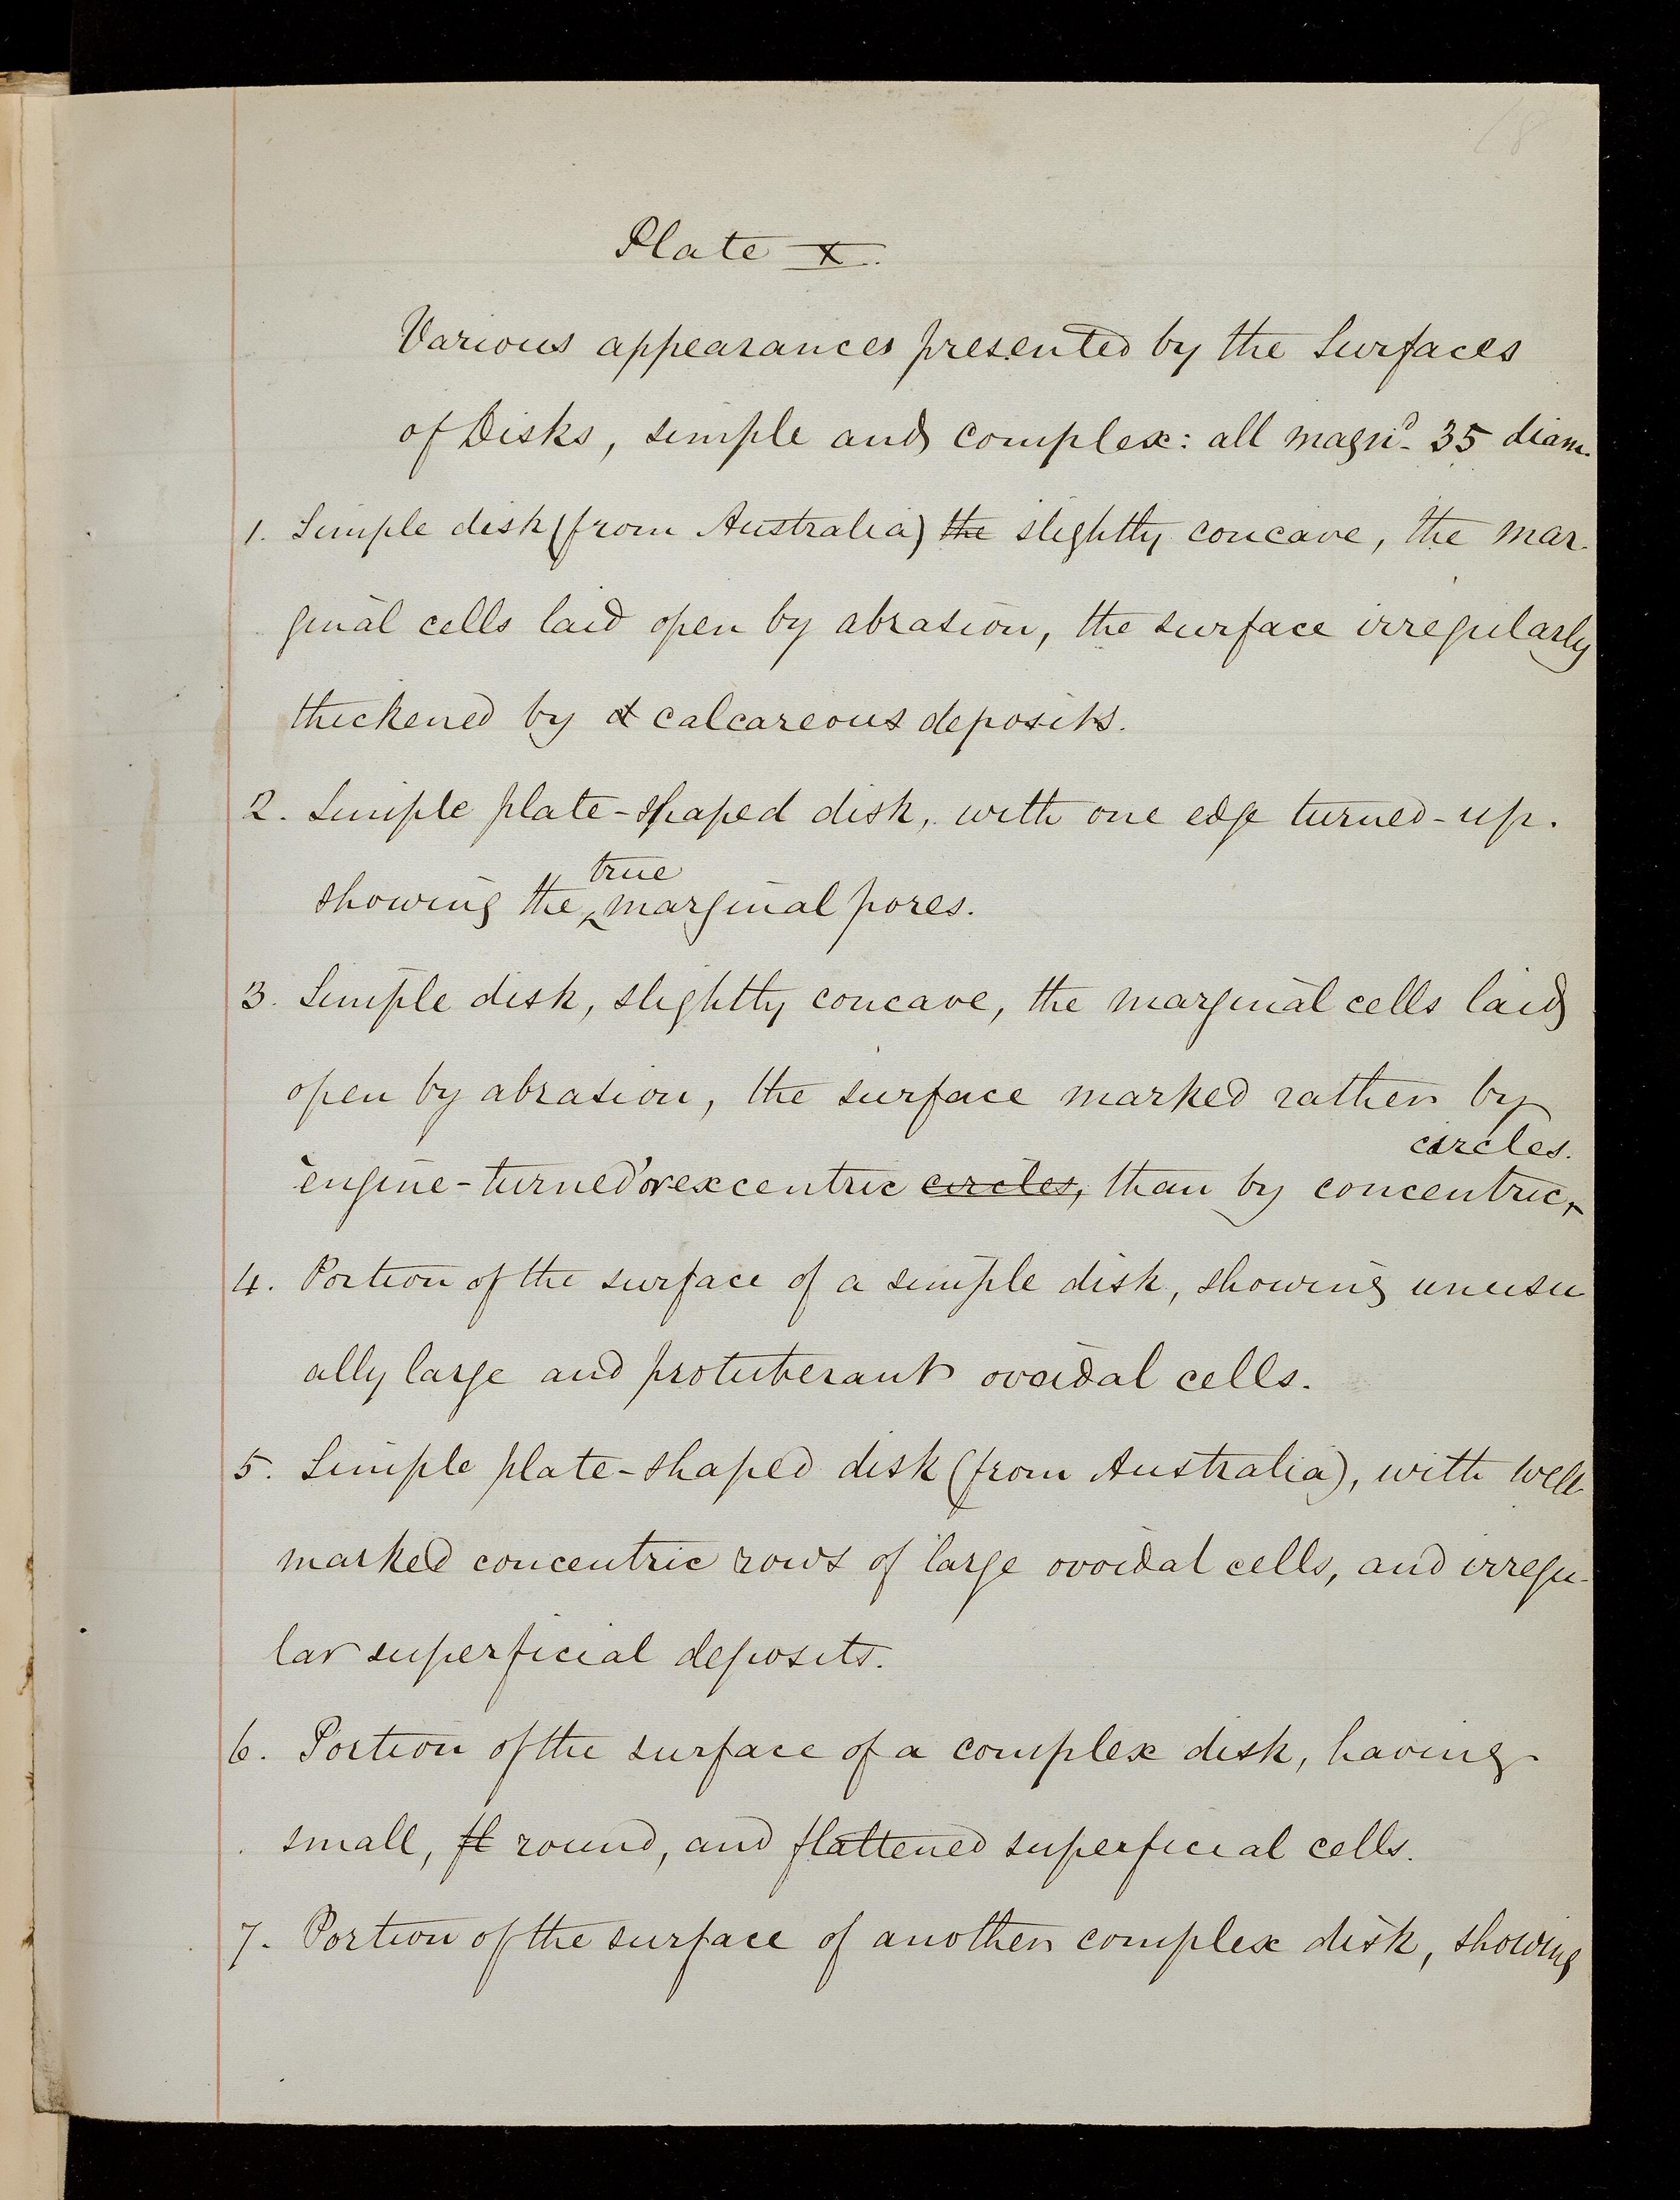 18
Plate X.
Various appearances presented by the Surfaces
of Disks, simple and complex: all magnd. 35 diam.
1. Simple disk (from Australia) the slightly concave, the mar-
ginal cells laid open by abrasion, the surface irregularly
thickened by calcareous deposits.
2. Simple plate-shaped disk, with one edge turned-up.
true
showing the ‸ marginal pores.
3. Simple disk, slightly concave, the marginal cells laid
open by abrasion, the surface marked rather by
circles.
'engine-turned' or excentric circles, than by concentric ‸
4. Portion of the surface of a simple disk, showing unusu
ally large and protuberant ovoidal cells.
5. Simple plate-shaped disk (from Australia), with well
marked concentric rows of large ovoidal cells, and irregu-
lar superficial deposits.
6. Portion of the surface of a complex disk, having
small, fl round, and flattened superficial cells.
7. Portion of the surface of another complex disk, showing